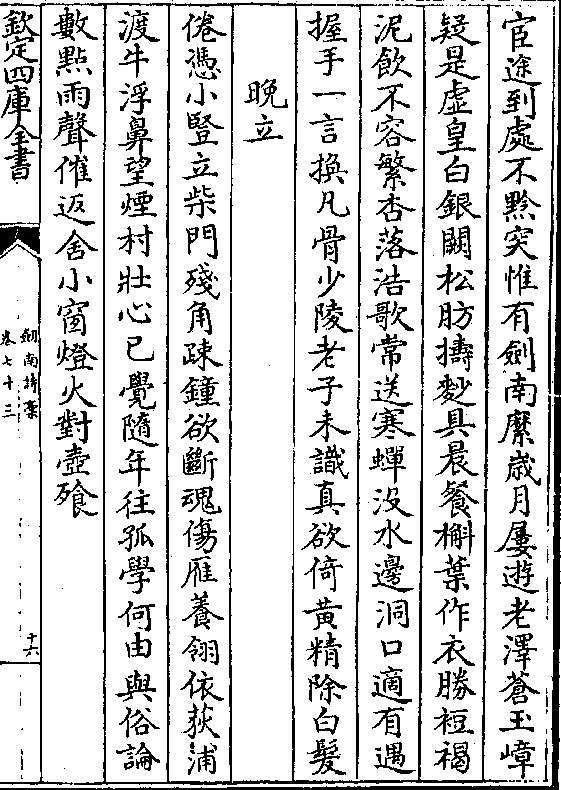 宦途到處不黔突惟有劍南縻歲月屢遊老澤蒼玉嶂
疑是虛皇白銀闕松肪擣麨具晨餐槲葉作衣勝裋褐
泥飲不容繁杏落浩歌常送寒蟬没水邊洞口適有遇
握手一言換凡骨少陵老子未識真欲倚黃精除白髮
晚立
倦憑小豎立柴門殘角疎鐘欲斷魂傷雁養翎依荻浦
渡牛浮鼻望煙村壯心已覺隨年往孤學何由與俗論
數點雨聲催返舍小窗燈火對壺飱
欽定四庫全書
劍南詩稾
卷七十三
十六